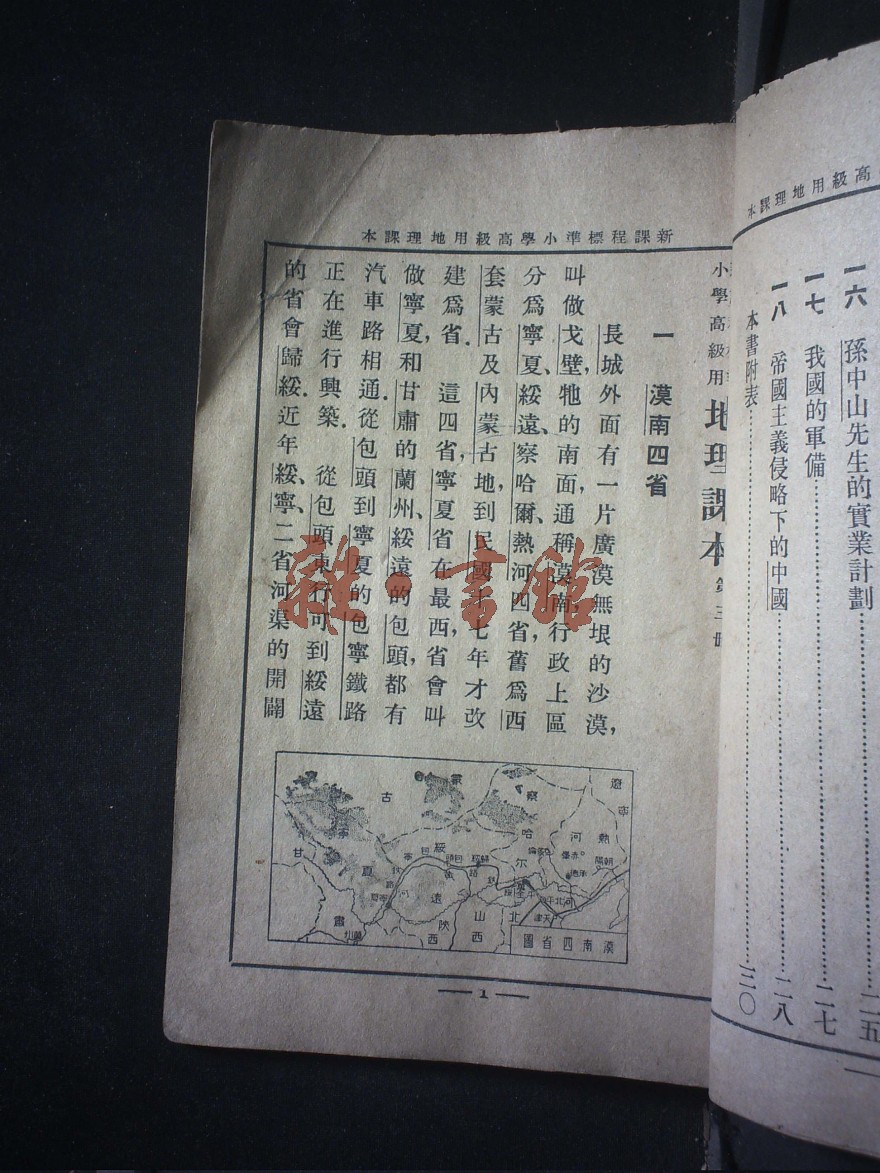 高級用地理課本
一六　孫中山先生的實業計劃……二五
一七　我國的軍備……二七
一八　帝國主義侵略下的中國……二八
本書附表……三〇
新課程標準小學高級用地理課本
小學高級用 地理課本 第三册
一　漠南四省
長城外面有一片廣漠無垠的沙漠，
叫做戈壁，牠的南面，通稱漠南，行政上區
分爲寧夏、綏遠、察哈爾、熱河四省，舊爲西
套蒙古及內蒙古地，到民國十七年才改
建爲省．　這四省，寧夏省在最西，省會叫
做寧夏，和甘肅的蘭州、綏遠的包頭，都有
汽車路相通．從包頭到寧夏的包寧鐵路
正在進行興築．　從包頭東行，可到綏遠
的省會歸綏．近年綏、寧、二省河渠的開闢
漠南四省圖
遼寧
熱河
察哈爾
綏遠
寧夏
蒙古
甘肅
陝西
山西
河北
朝陽
承德
赤峯
歸綏
包頭
北平
天津
蘭州
1
雜·書館